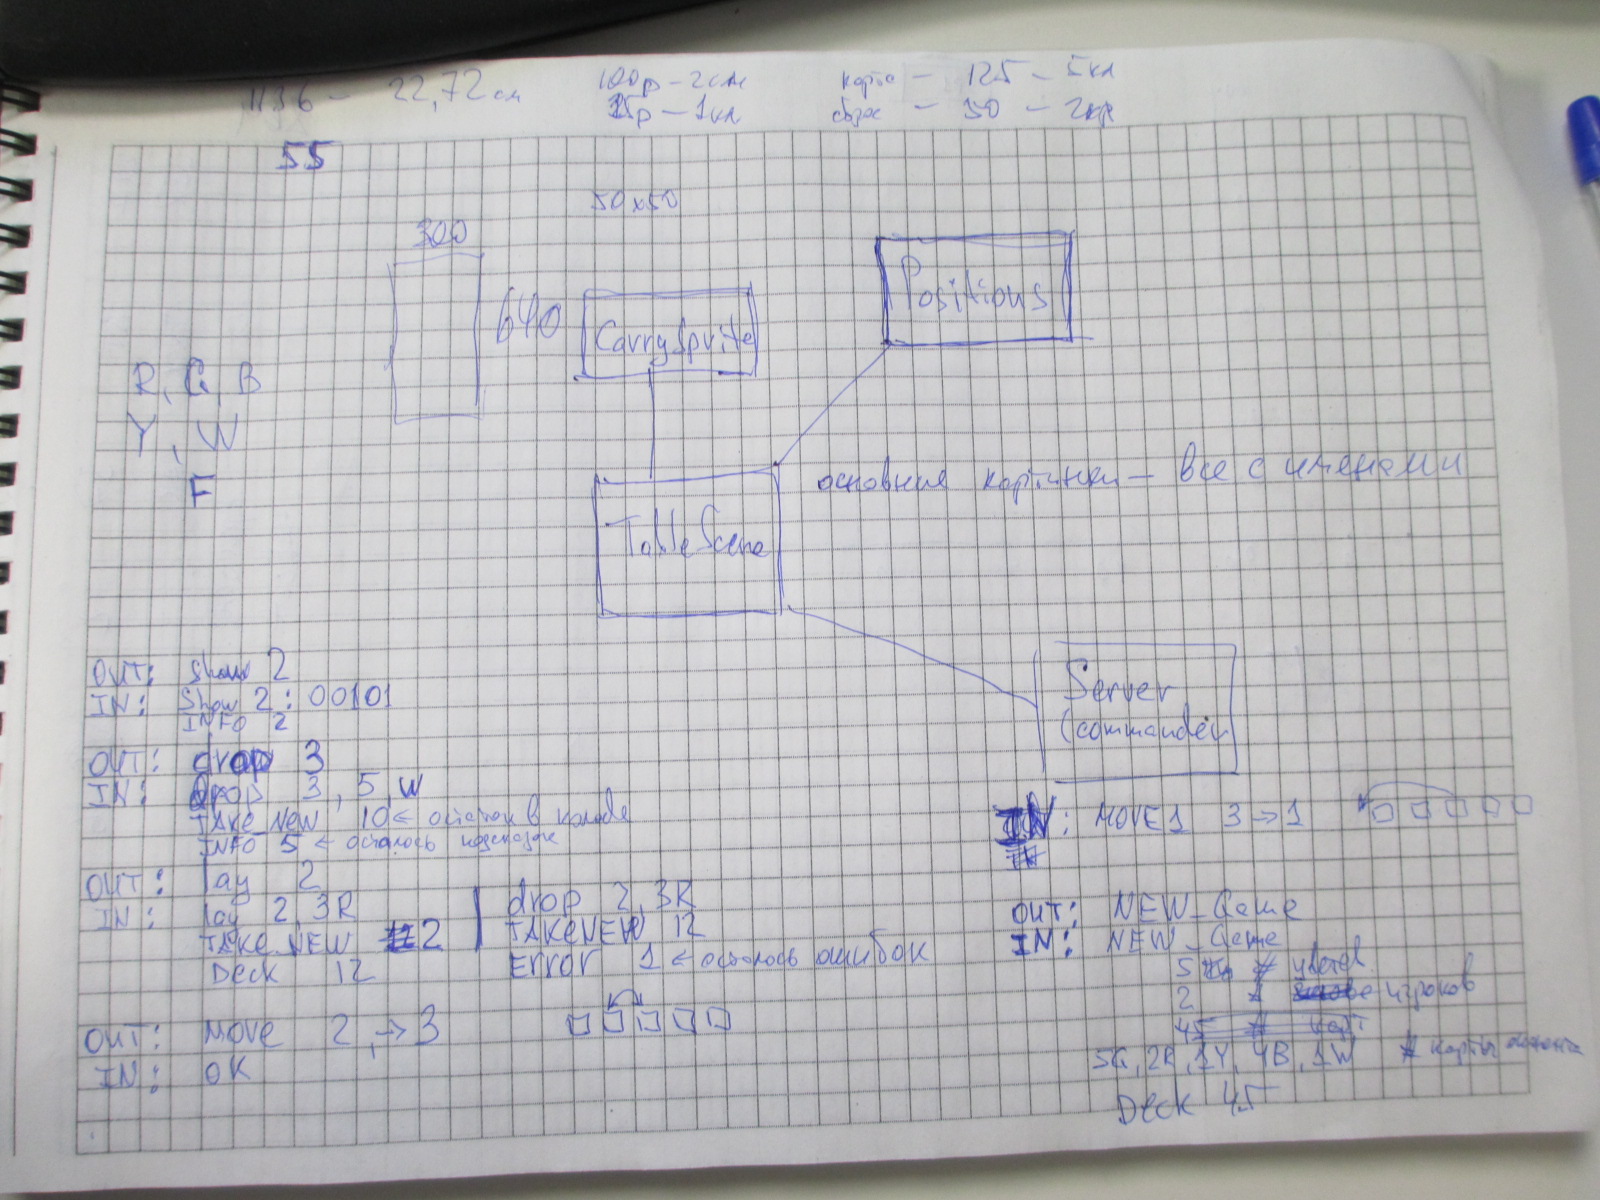 1136 - 22,72 см
100р - 2см
25р - 1кл
карта - 125 - 5кл
сброс - 50 - 2кл
55
50x50
300
640
CarrySprite
Positions
R, G, B
Y, W
F
основные картинки - все с именами
TableScene
Server
(commander)
OUT: Show 2
IN: Show 2: 00101
INFO 2
OUT: drop 3
IN: Drop 3, 5, W
TAKE_NEW 10 <- остаток в колоде
INFO 5 <- осталось подсказок
OUT: lay 2
IN: lay 2, 3R
TAKE_NEW 2
Deck 12
drop 2, 3R
TAKENEW 12
Error 1 <- осталось ошибок
OUT: Move 2, -> 3
IN: OK
IN: MOVE1 3 -> 1
OUT: NEW_Game
IN: NEW_Game
5 # цветов
2 # игроков
45 # карт
5G, 2R, 1Y, 4B, 1W # карты
Deck 45